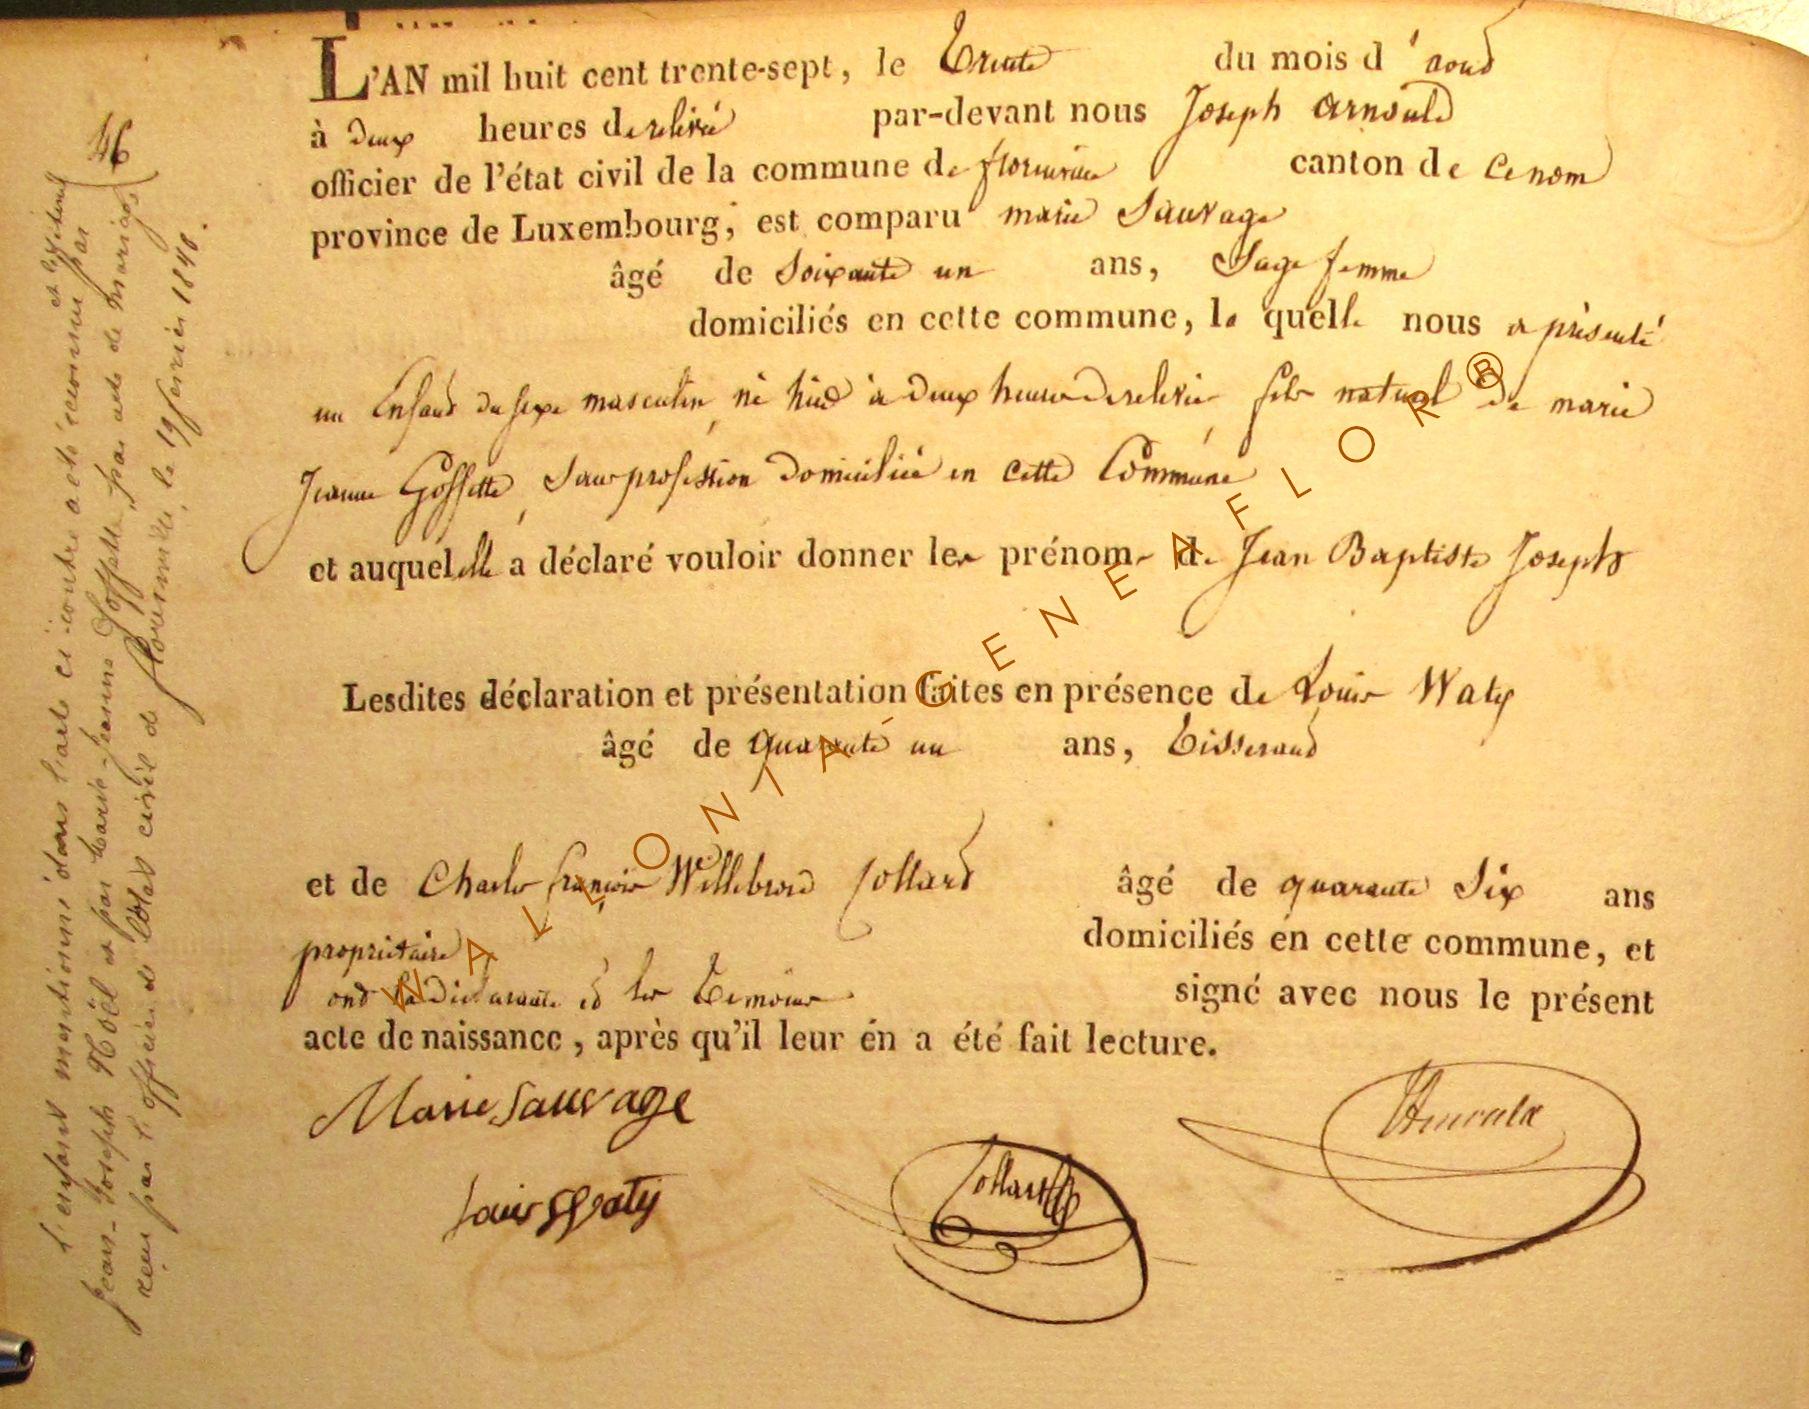 L'AN mil huit cent trente-sept, le trente du mois d'aout
à deux heures de relevée par-devant nous Joseph Arnould
officier de l'état civil de la commune de florenville canton de ce nom
province de Luxembourg, est comparu marie Sauvage
âgé de Soixante un ans, Sage femme
domiciliés en cette commune, la quelle nous a présenté
un Enfant du sexe masculin né hier à deux heures de relevée fils naturel de marie
Jeanne Goffette, Sans profession Domiciliée en cette Commune
et auquel elle a déclaré vouloir donner les prénoms de Jean Baptiste Joseph
Lesdites déclaration et présentation faites en présence de Louis Waty
âgé de quarante un ans, tisserand
et de Charles françois Willebrord Collard âgé de quarante Six ans
propriétaire domiciliés en cette commune, et
ont la Déclarante et les témoins signé avec nous le présent
acte de naissance, après qu'il leur en a été fait lecture.
Marie Sauvage
Louis Waty
Collard
Arnould
46
L'enfant mentionné dans l'acte ci-contre a été reconnu par
Jean-Joseph Noël et par Marie-Jeanne Goffette, par acte de mariage
reçu par l'officier de l'état civil de florenville, le 19 février 1840.
WALLONIA-GENEAFLOR®